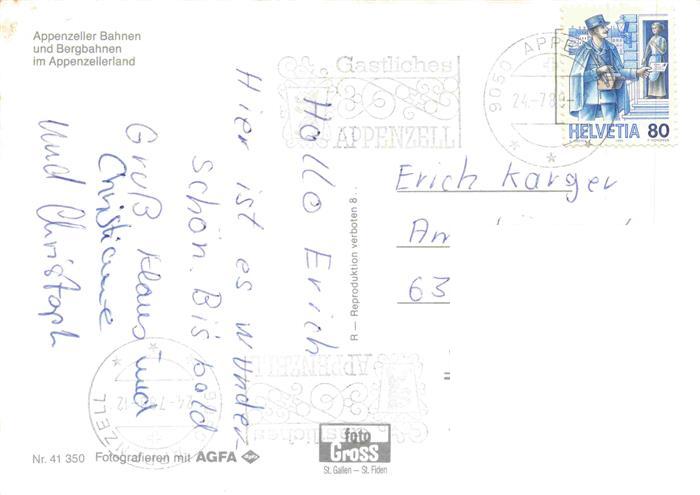 Appenzeller Bahnen
und Bergbahnen
im Appenzellerland
Hallo Erich
Hier ist es wunder-
schön. Bis bald
Gruß Klaus und
Christiane
und Christoph
Gastliches
APPENZELL
9050 APPENZELL
24.-7.89
HELVETIA 80
Erich Karger
Am
63
R — Reproduktion verboten 8..
Gastliches
APPENZELL
24.-7.89-12
APPENZELL
Nr. 41 350 Fotografieren mit AGFA
foto
Gross
St. Gallen – St. Fiden